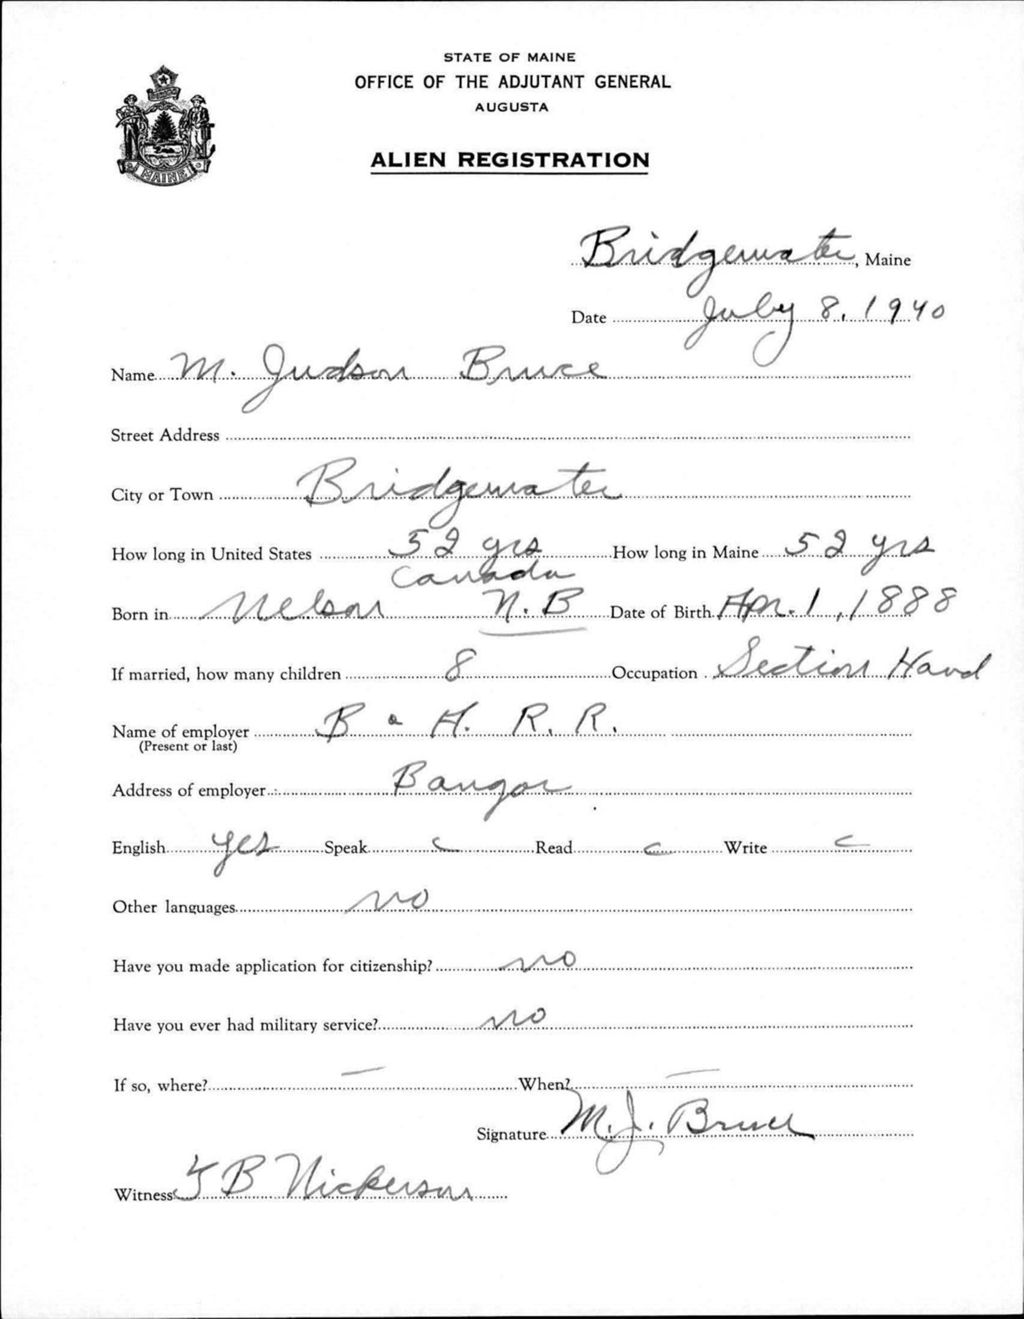 STATE OF MAINE
OFFICE OF THE ADJUTANT GENERAL
AUGUSTA
ALIEN REGISTRATION
MAINE
Bridgewater, Maine
Date July 8, 1940
Name M. Judson Bruce
Street Address
City or Town Bridgewater
How long in United States 52 yrs How long in Maine 52 yrs
Canada
Born in Nelson N.B Date of Birth Apr. 1, 1888
If married, how many children 8 Occupation Section Hand
Name of employer B & A. R. R.
(Present or last)
Address of employer Bangor
English yes Speak Read Write
Other languages no
Have you made application for citizenship? no
Have you ever had military service? no
If so, where? — When? —
Signature M. J. Bruce
Witness B Nickerson